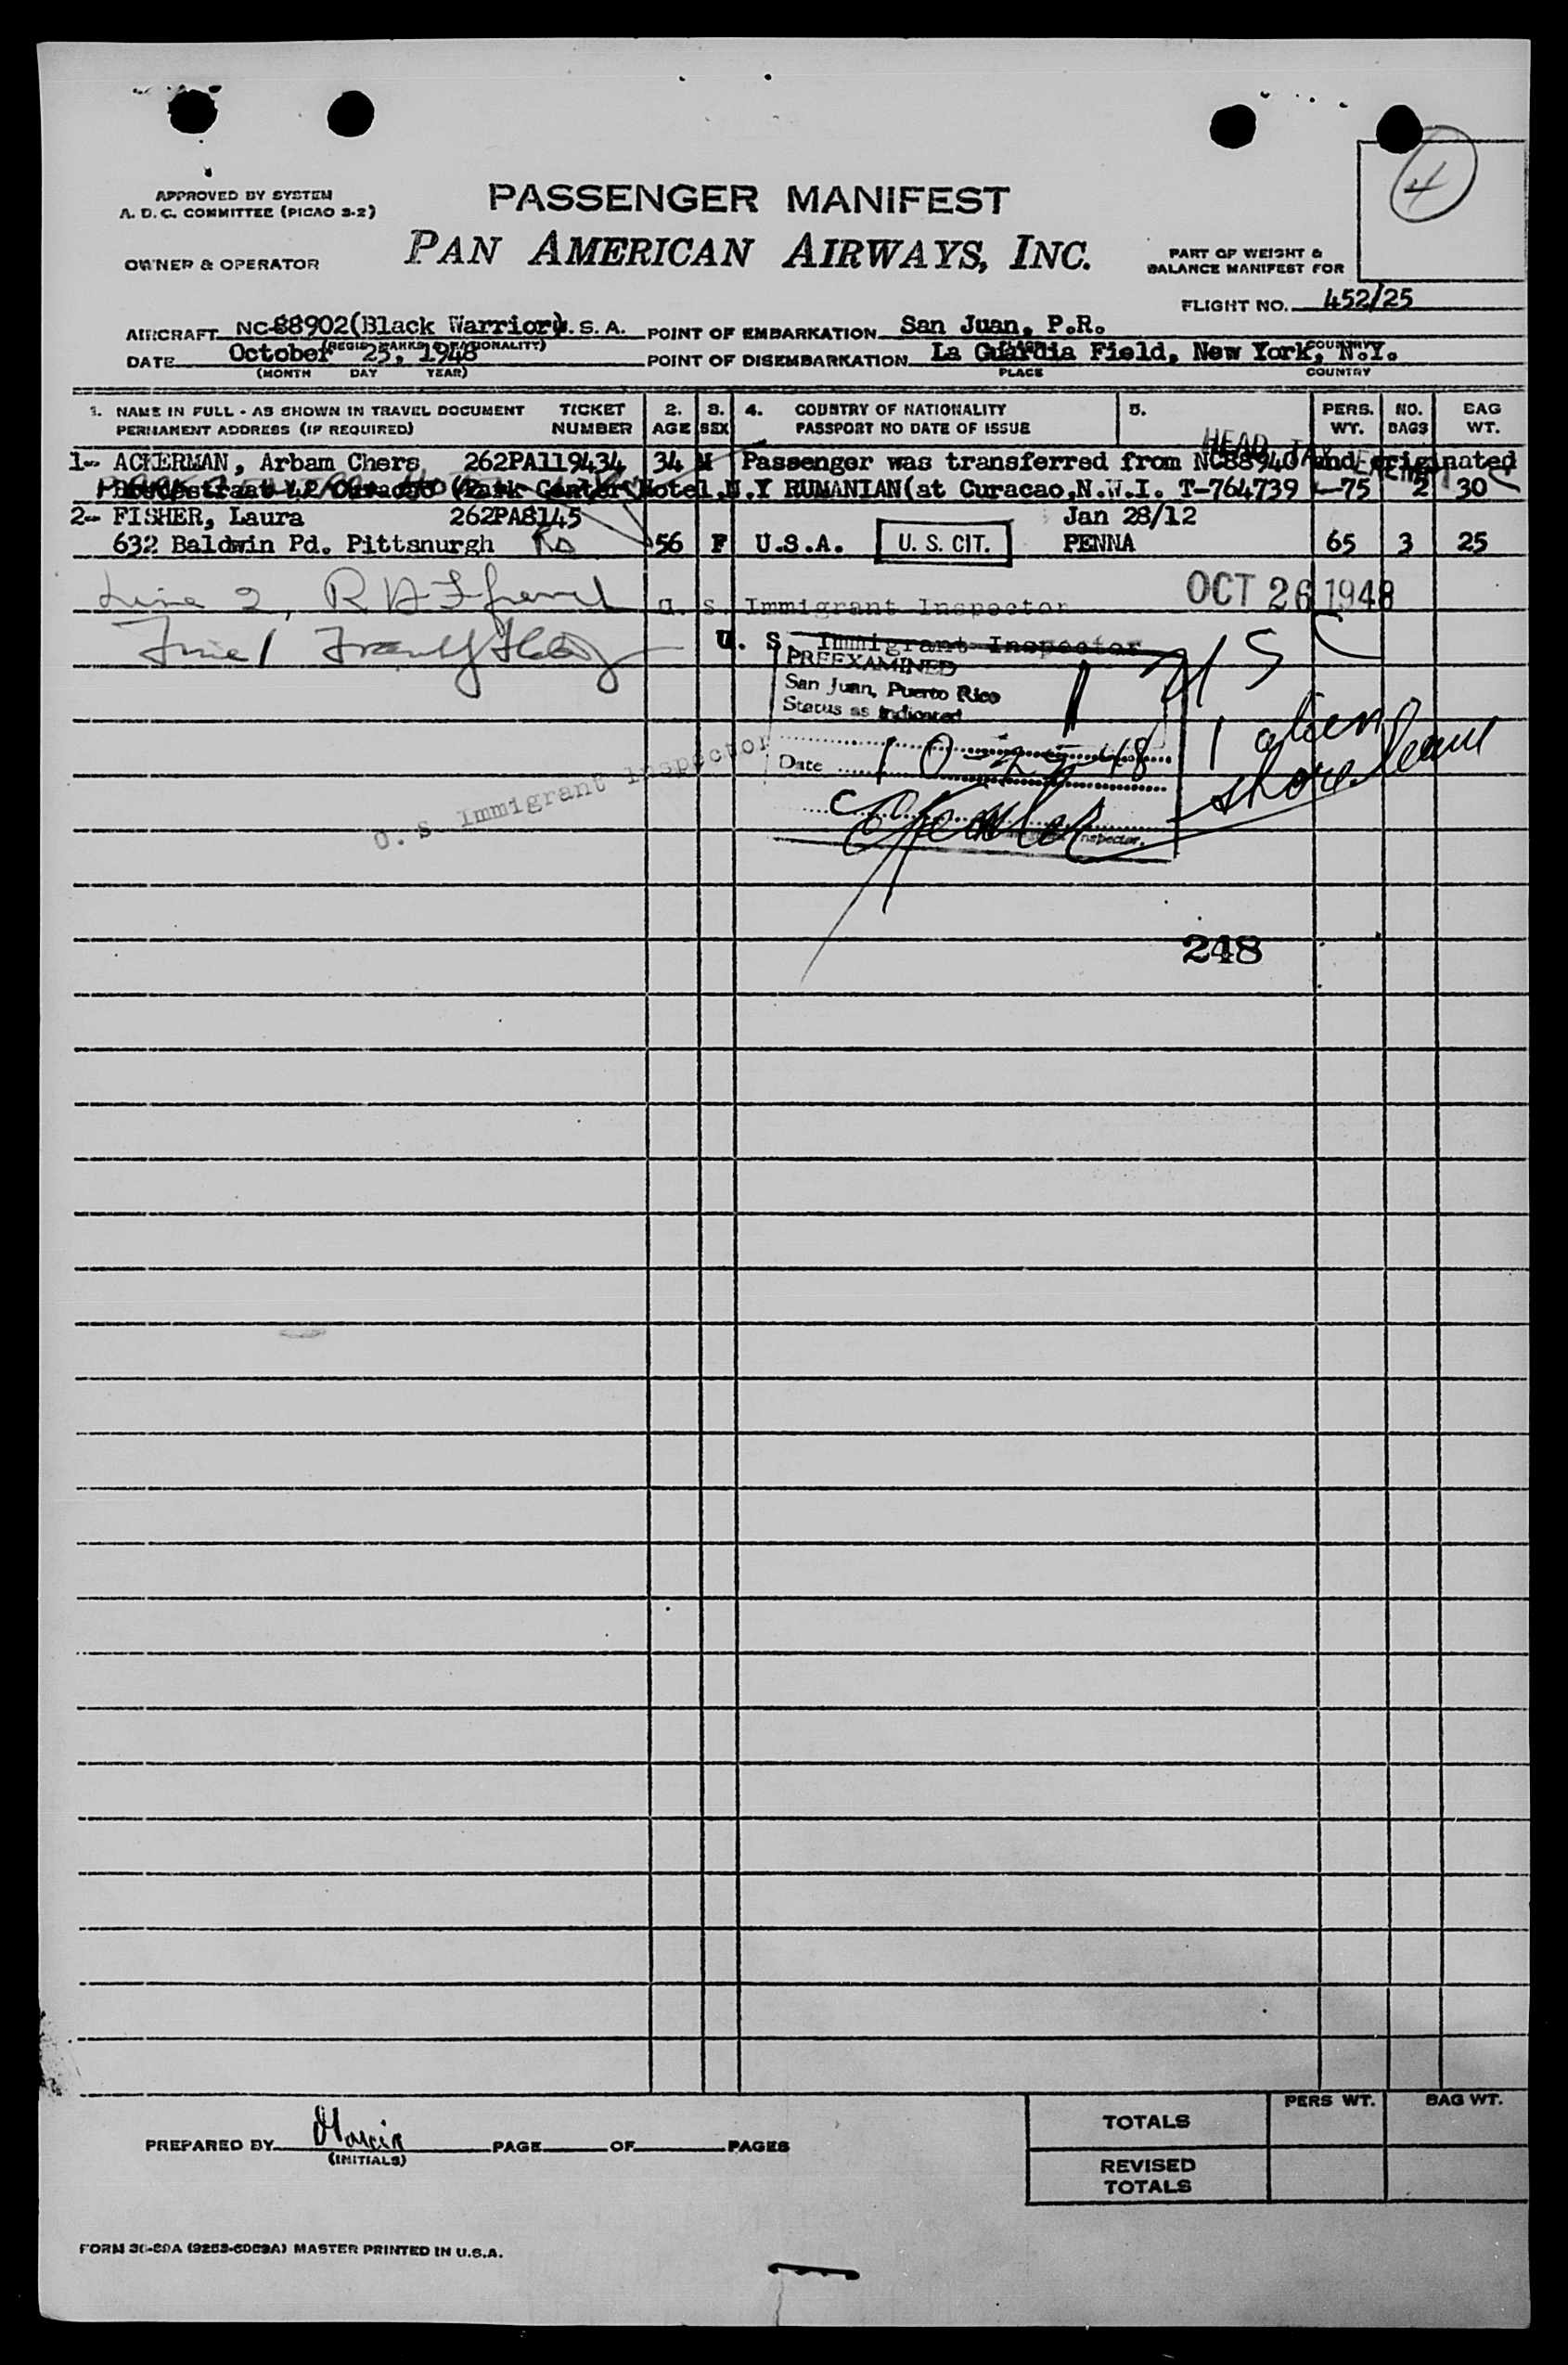 4
APPROVED BY SYSTEM
A. D. C. COMMITTEE (PICAO 3-2)
PASSENGER MANIFEST
OWNER & OPERATOR
PAN AMERICAN AIRWAYS, INC.
PART OF WEIGHT &
BALANCE MANIFEST FOR
FLIGHT NO. 452/25
AIRCRAFT NC-88902(Black Warrior) U. S. A. POINT OF EMBARKATION San Juan, P.R.
DATE October 25, 1948 POINT OF DISEMBARKATION La Guardia Field, New York, N.Y.
(MONTH DAY YEAR) PLACE COUNTRY
1. NAME IN FULL - AS SHOWN IN TRAVEL DOCUMENT TICKET 2. 3. 4. COUNTRY OF NATIONALITY 5. PERS. NO. BAG
PERMANENT ADDRESS (IF REQUIRED) NUMBER AGE SEX PASSPORT NO DATE OF ISSUE WT. BAGS WT.
HEAD TAX
1-- ACKERMAN, Arbam Chers 262PA119434 34 M Passenger was transferred from NC88940 and originated
Curacao (Park Center Hotel,N.Y RUMANIAN(at Curacao,N.W.I. T-764739 75 2 30
2-- FISHER, Laura 262PA8145 Jan 28/12
632 Baldwin Pd. Pittsnurgh 56 F U.S.A. U. S. CIT. PENNA 65 3 25
Line 2, U. S. Immigrant Inspector OCT 26 1948
Line 1 U. S. Immigrant Inspector
PREEXAMINED
San Juan, Puerto Rico
Status as indicated
1 USC
1 alien
shore leave
Date 10-25-48
Inspector.
U. S. Immigrant Inspector
248
PREPARED BY Garcia PAGE OF PAGES
(INITIALS)
PERS WT. BAG WT.
TOTALS
REVISED
TOTALS
FORM MASTER PRINTED IN U.S.A.